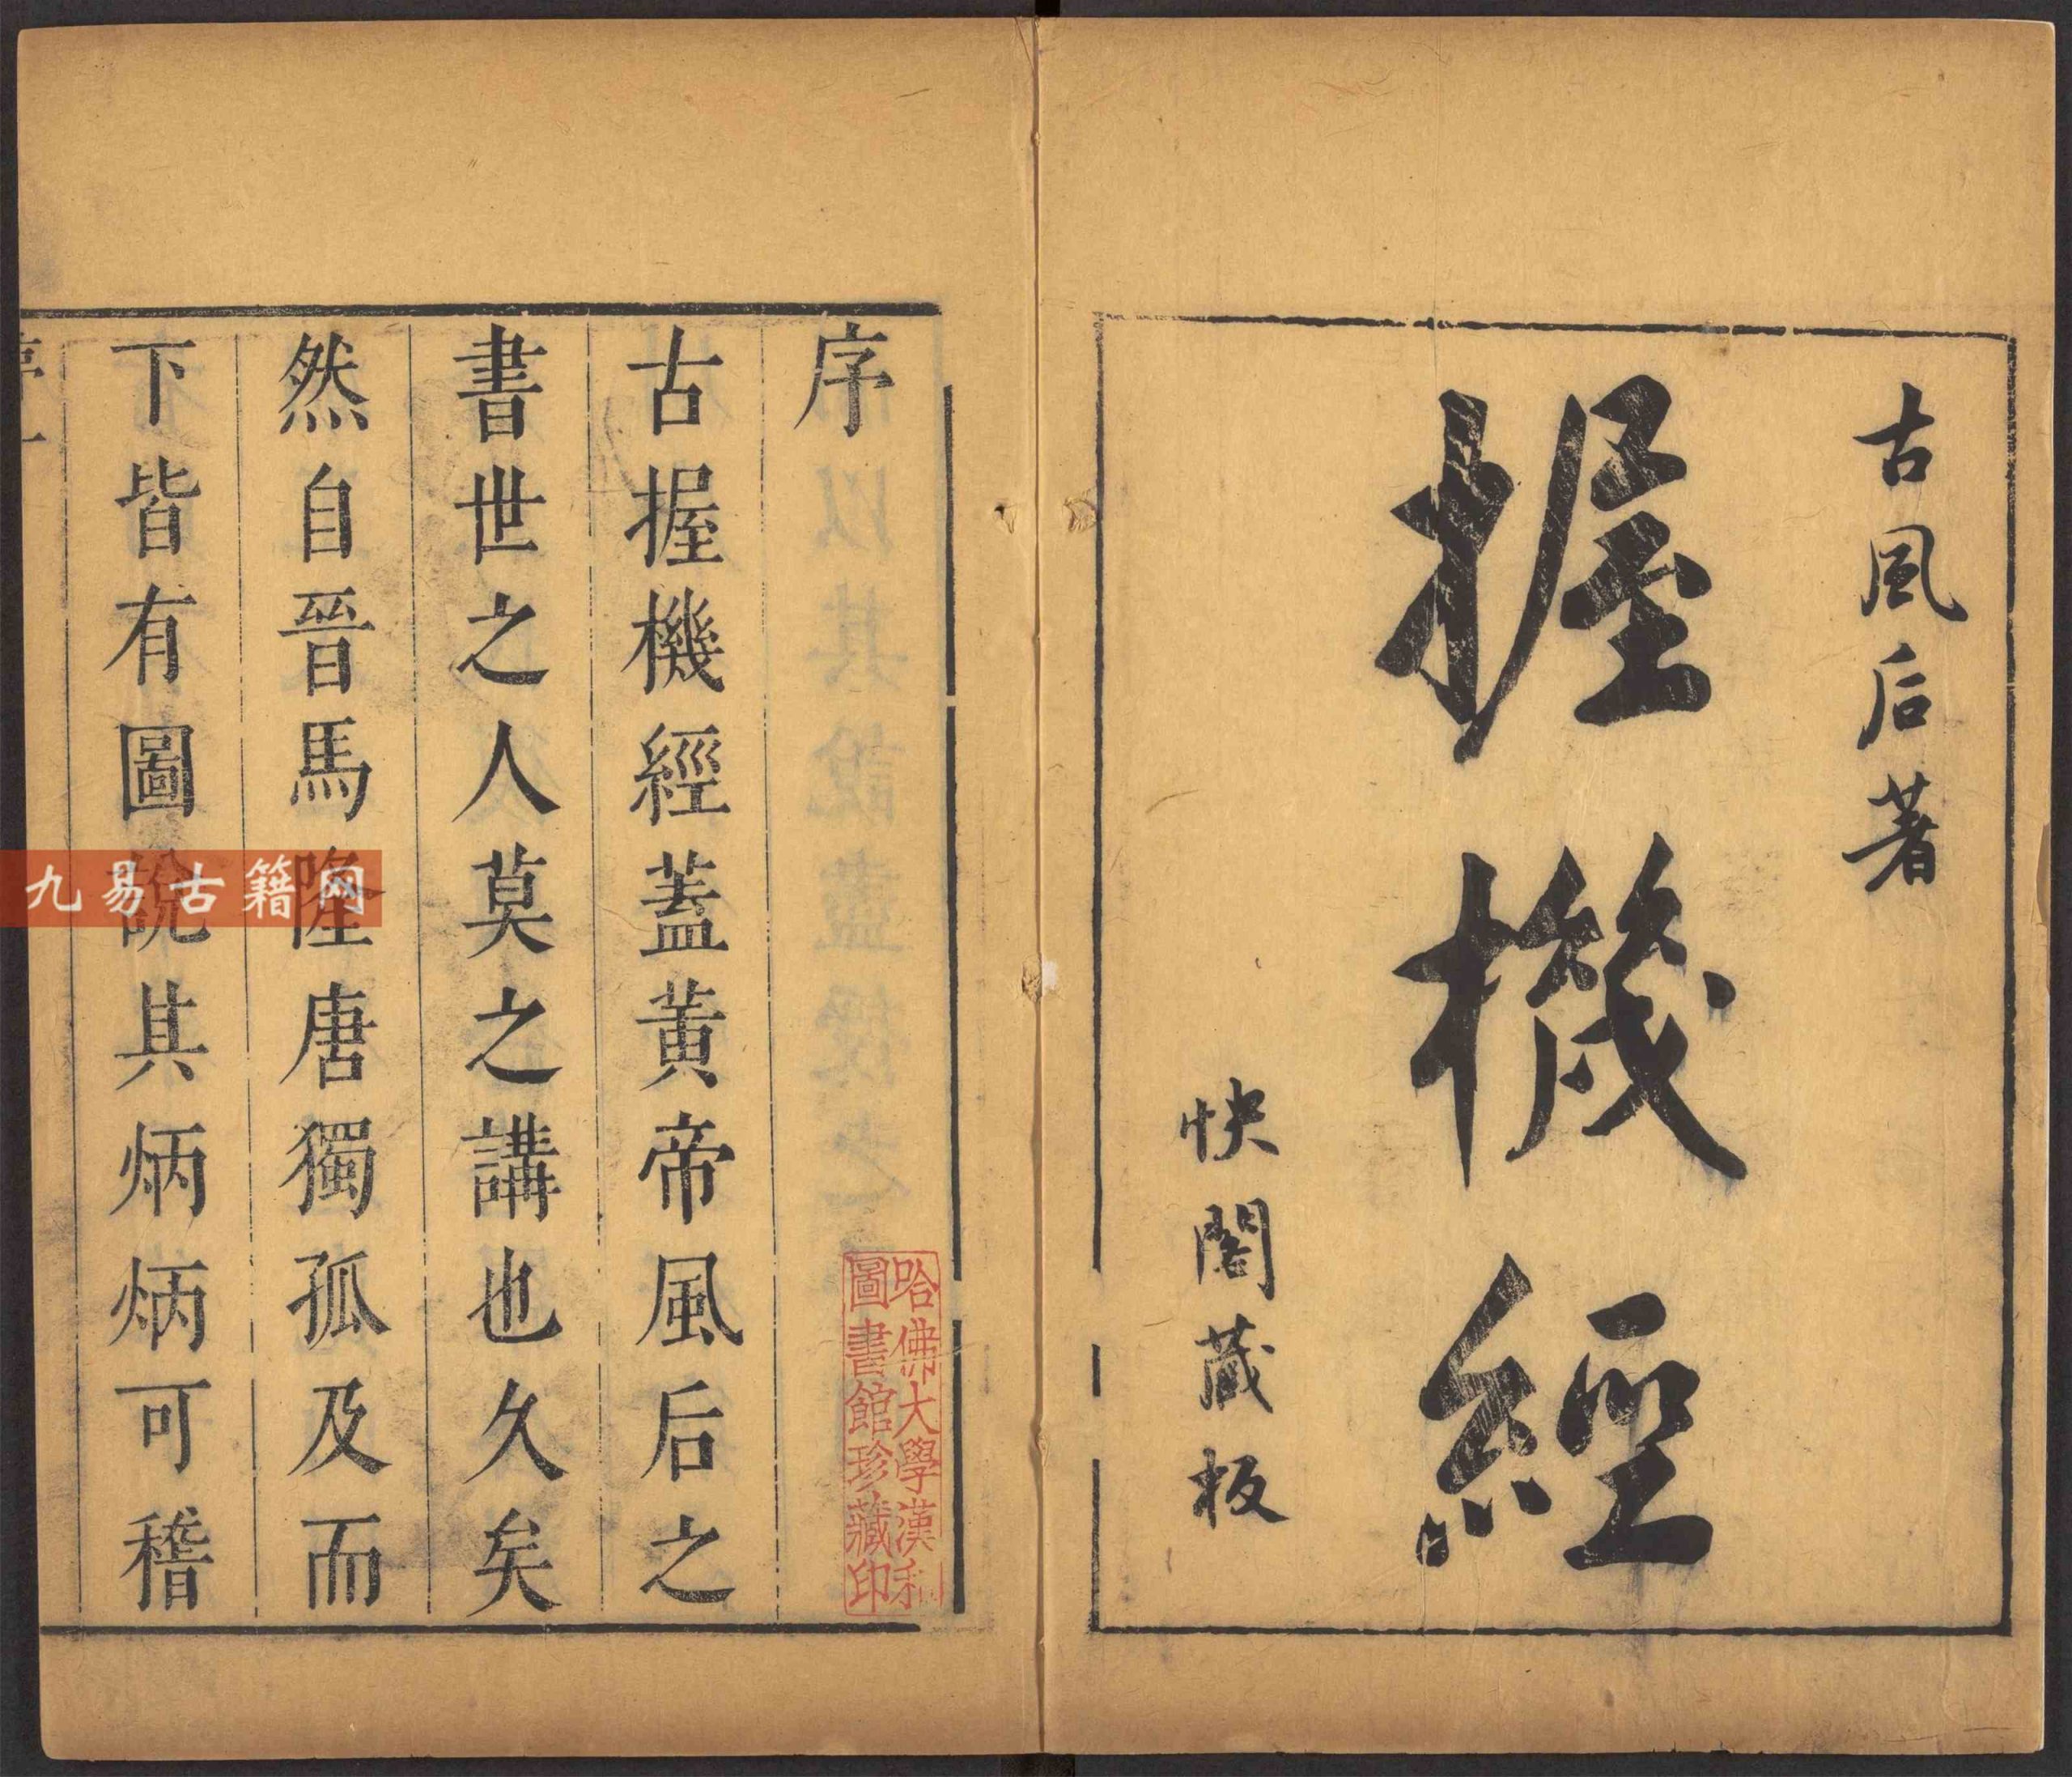 古風后著
握機經
快閣藏板
序
古握機經蓋黃帝風后之
書世之人莫之講也久矣
然自晉馬隆唐獨孤及而
下皆有圖說其炳炳可稽
序一
哈佛大學漢和
圖書館珍藏印
九易古籍网